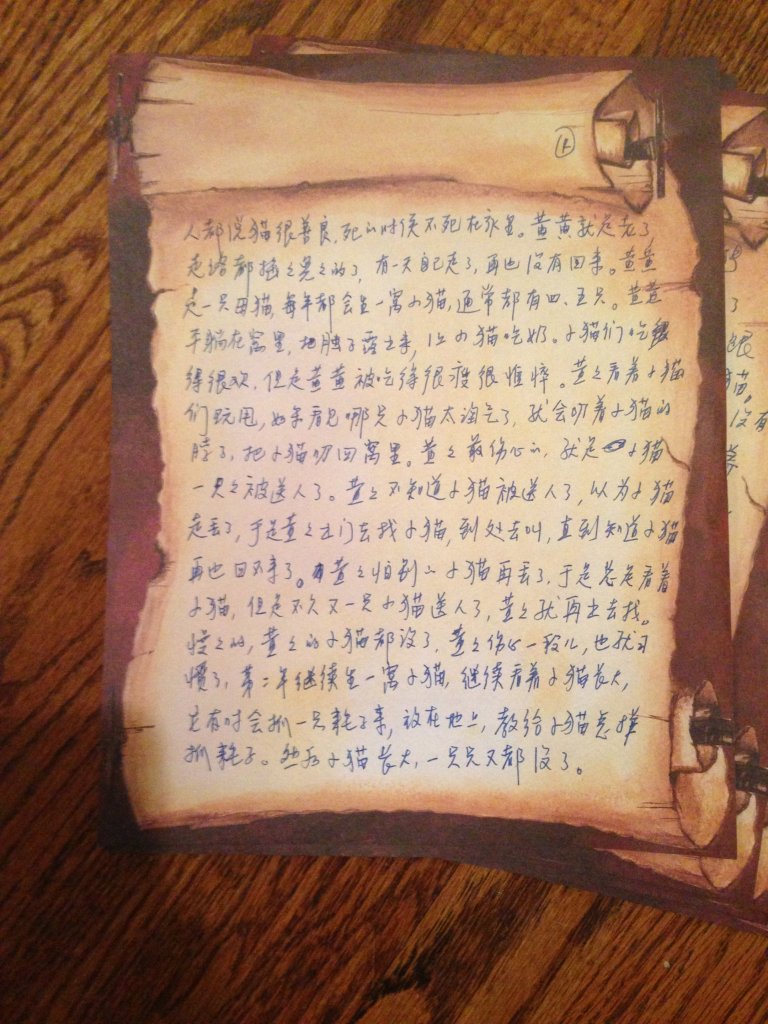 人都说猫很善良,死的时候不死在家里。黄黄就是老了
走路都摇々晃々的了,有一天自己走了,再也没有回来。黄黄
是一只母猫,每年都会生一窝小猫,通常都有四、五只。黄黄
平躺在窝里,把肚子露出来,让小猫吃奶。小猫们吃
得很欢,但是黄黄被吃得很疲很憔悴。黄々看着小猫
们玩甩,如果看见哪只小猫太淘气了,就会叨着小猫的
脖子,把小猫叨回窝里。黄々最伤心的,就是小猫
一只々被送人了。黄々不知道小猫被送人了,以为小猫
走丢了,于是黄々出门去找小猫,到处去叫,直到知道小猫
再也回不来了。黄々怕别的小猫再丢了,于是总是看着
小猫,但是不久又一只小猫送人了,黄々就再出去找。
慢々的,黄々的小猫都没了,黄々伤心一段儿,也就习
惯了,第二年继续生一窝小猫,继续看着小猫长大,
还有时会抓一只耗子来,放在地上,教给小猫怎样
抓耗子。然后小猫长大,一只只又都没了。
没有